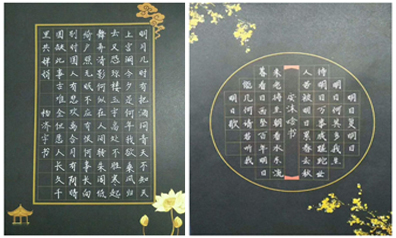 明月几时有把酒问青天不知天
上宫阙今夕是何年我欲乘风归
去又恐琼楼玉宇高处不胜寒起
舞弄清影何似在人间转朱阁低
绮户照无眠不应有恨何事长向
别时圆人有悲欢离合月有阴晴
圆缺此事古难全但愿人长久千
里共婵娟
明日复明日
明日何其多我生
待明日万事成蹉跎世
人若被明日累春去秋
安沐晗书
来老将至朝看水东流
暮看日西坠百年明日
能几何请君听我
明日歌